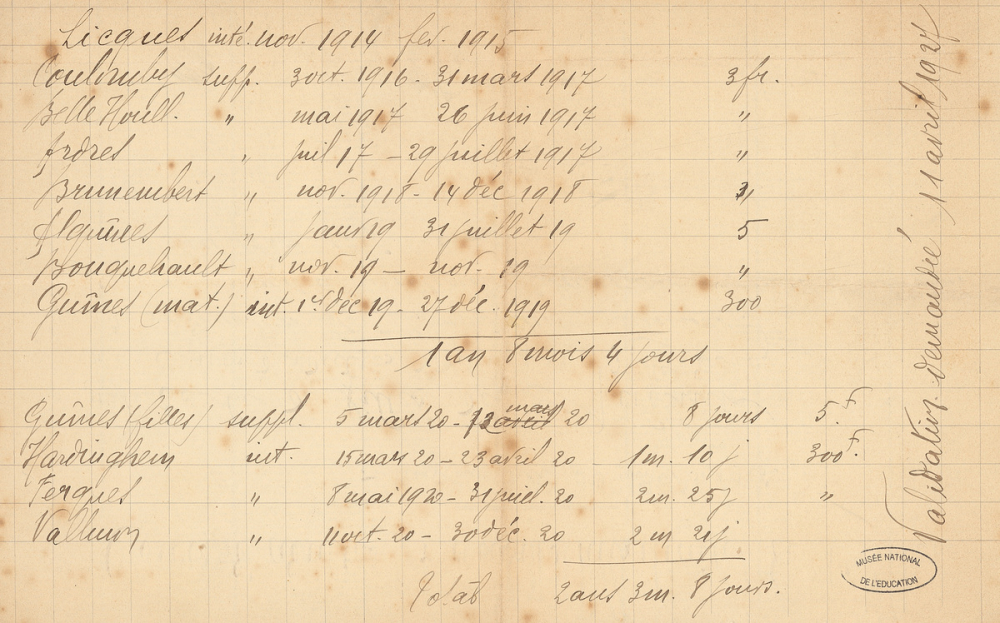 Licques inté. nov. 1914 fev. 1915
Coulomby supp. 3 oct. 1916 - 31 mars 1917 3 fr.
Belle Houll. " mai 1917 26 juin 1917 "
Ardres " juil 17 - 29 juillet 1917 "
Brunembert " nov. 1918 - 14 déc 1918 3 "
Alquines " janv 19 31 juillet 19 5
Bouquehault " nov. 19 — nov. 19 "
Guînes (mat.) int. 1er déc 19 - 27 déc. 1919 300
1 an 8 mois 4 jours
Guînes (filles) suppl. 5 mars 20 - 12 avril mars 20 8 jours 5.f
Hardinghem int. 15 mars 20 - 23 avril 20 - 1 m. 10 j 300f.
Ferques " 8 mai 1920 - 31 juil. 20 2 m. 25 j "
" 11 oct. 20 - 30 déc. 20 2 m 21 j
Total 2 ans 3 m. 8 jours.
Validation demandée 11 avril 1927
MUSÉE NATIONAL
DE L'EDUCATION